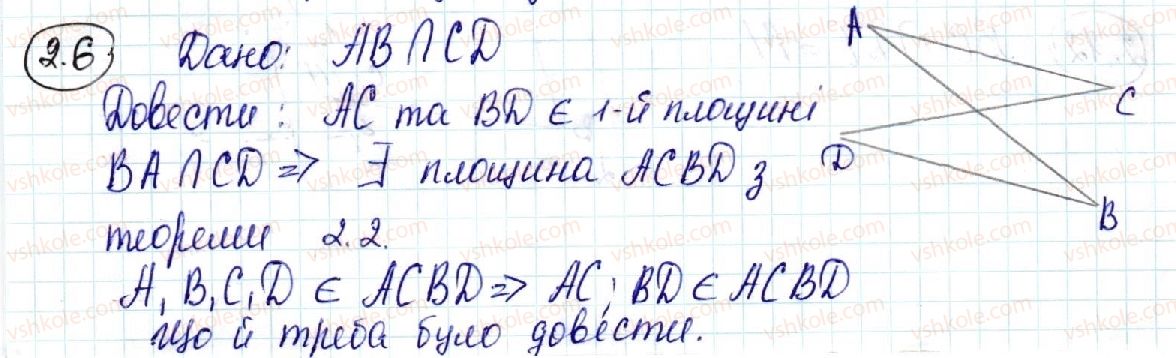 2.6 Дано: AB ∩ CD
Довести: AC та BD ∈ 1-й площині
BA ∩ CD ⇒ ∃ площина ACBD з
теореми 2.2.
A, B, C, D ∈ ACBD ⇒ AC; BD ∈ ACBD
що й треба було довести.
A
C
D
B
vshkole.com